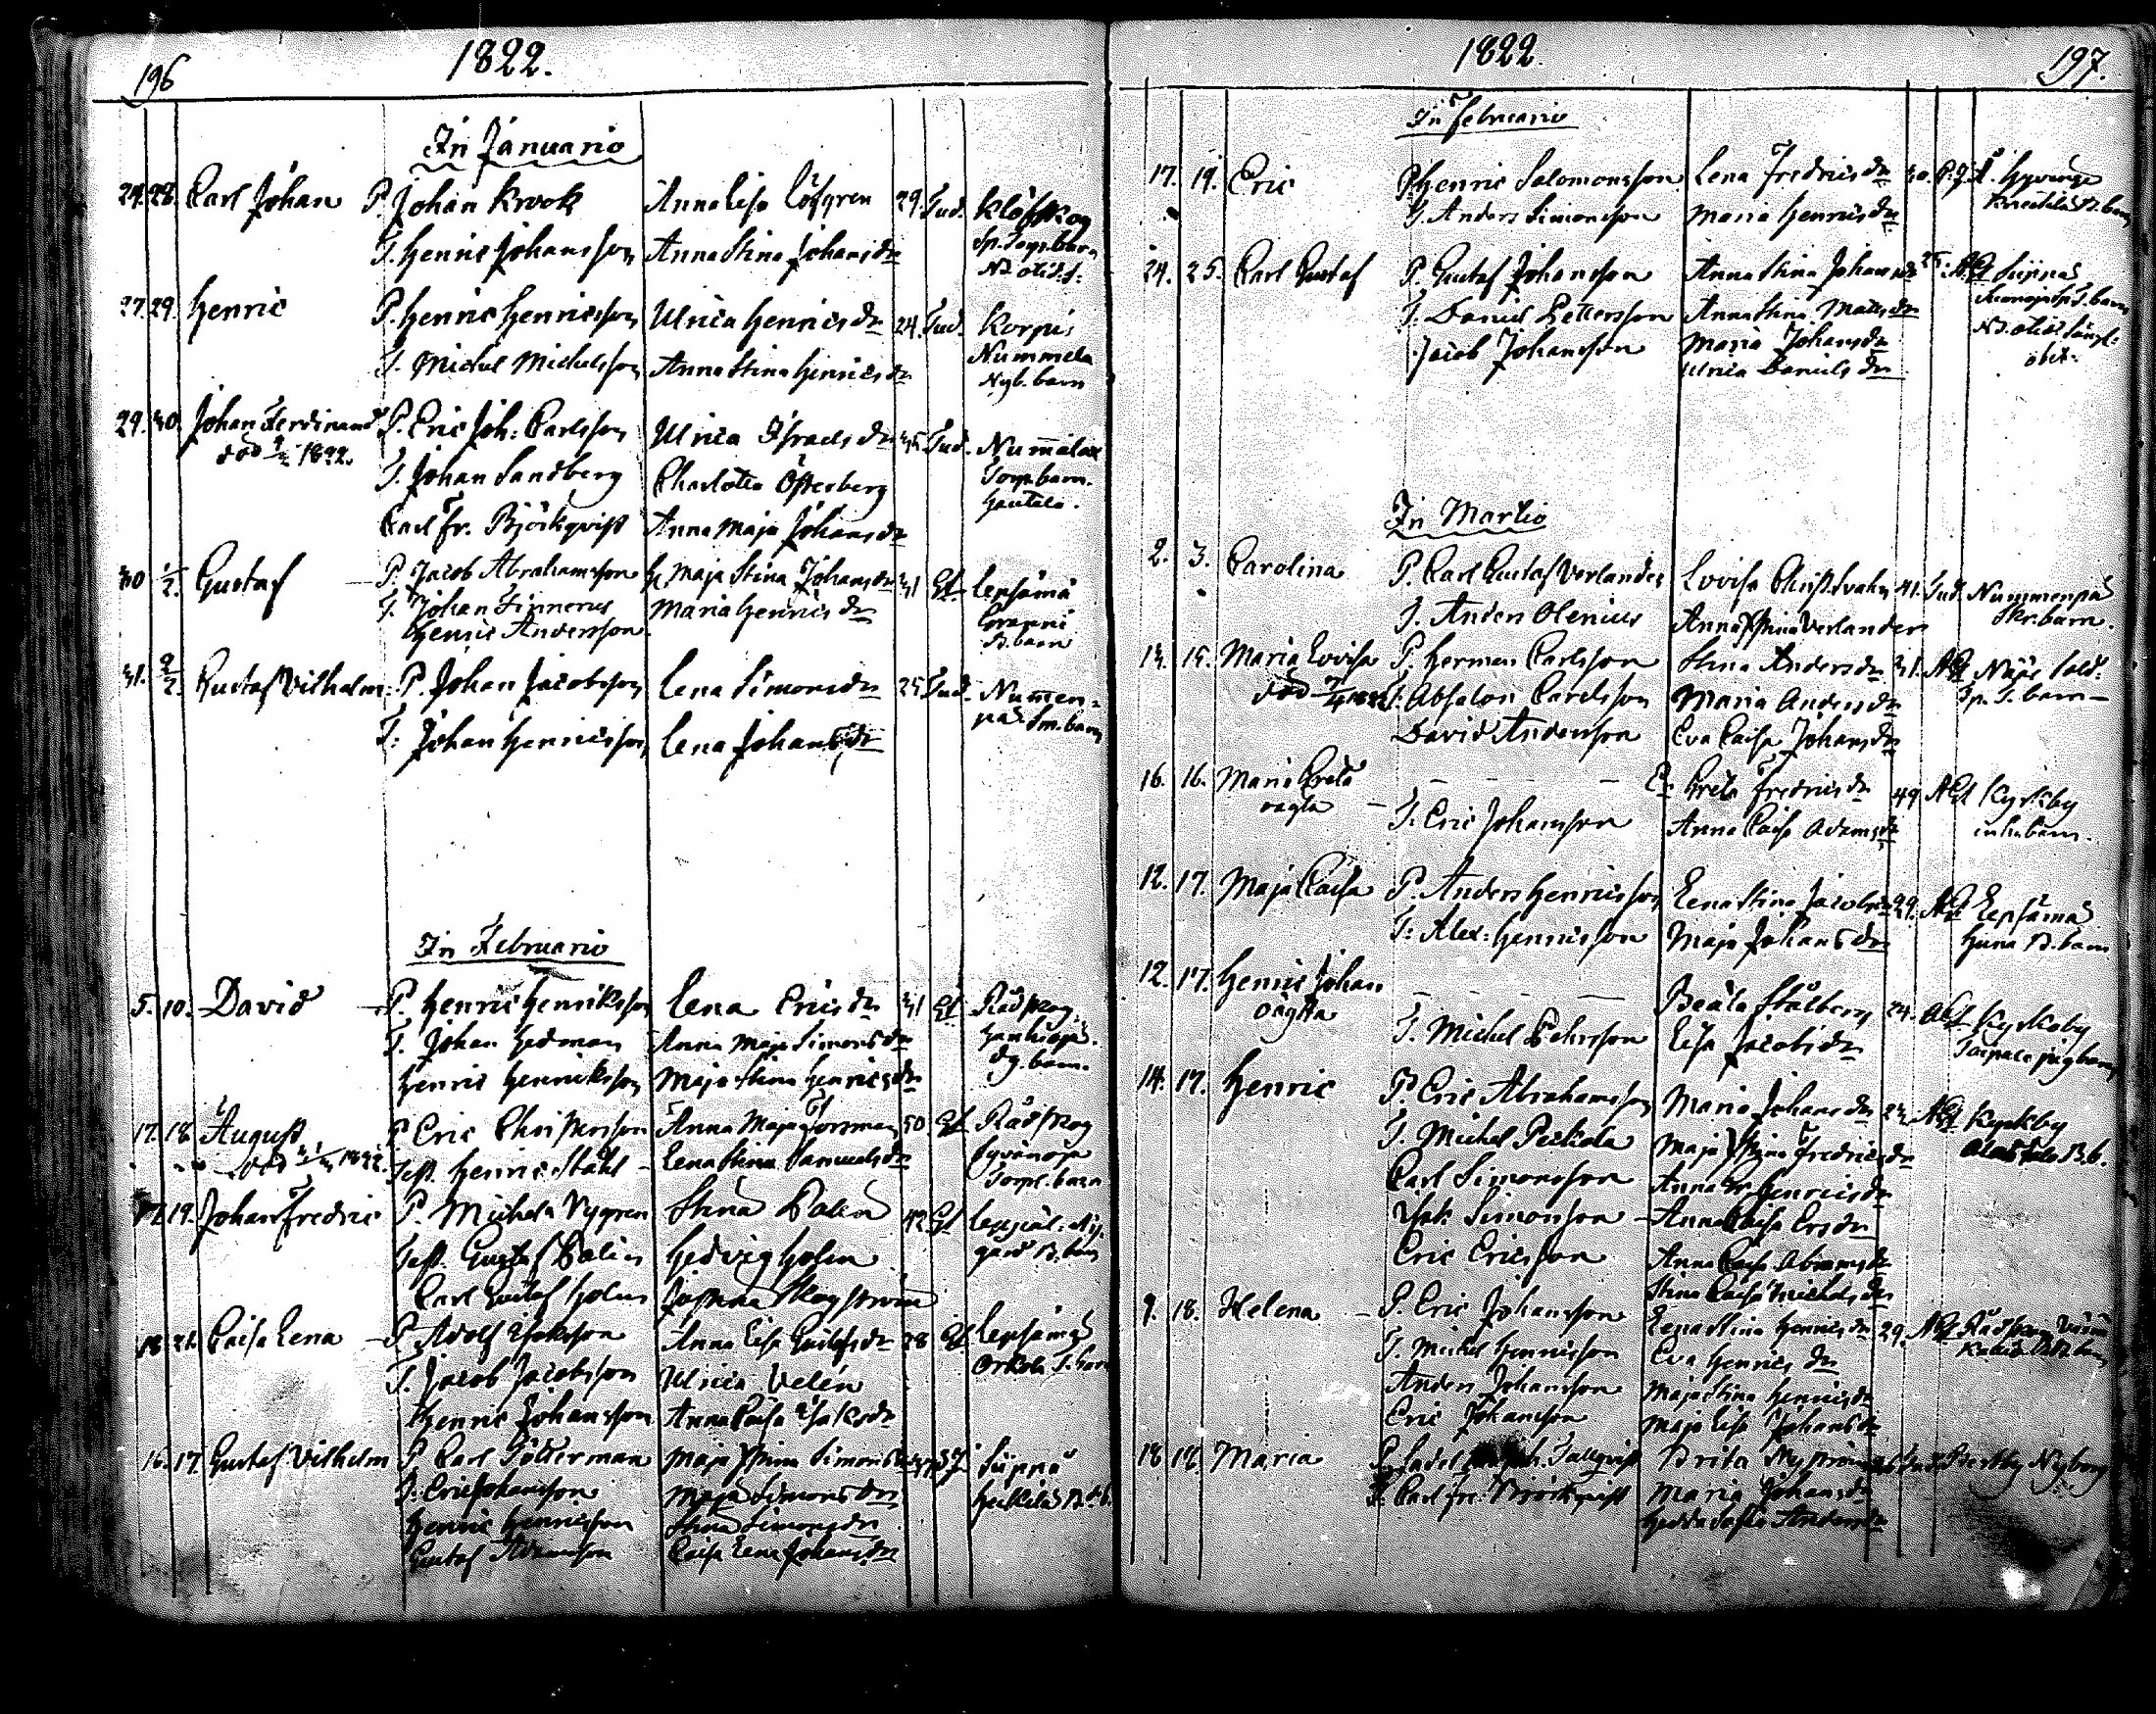 196
1822.
In Januario
24. 28. Carl Johan P. Johan Krook Anna Lisa Löfgren 29. Tud. Klöfskog
T. Henric Johansson Anna Stina Johansdr Sp. Torp. barn
27. 29. Henric P. Henric Henricsson Ulrica Henricsdr 24. Tud. Korpis
T. Michel Michelsson Anna Stina Henricsdr Nummela
Nyb. barn
29. 30. Johan Ferdinand P. Eric Joh: Carlsson Ulrica Israelsdr 35 Tud. Nummelax
död 1822. T. Johan Sandberg Charlotta Österberg Torp. barn.
Carl Fr. Björkqvist Anna Maja Johansdr
30 1/2. Gustaf P. Jacob Abrahamsson H. Maja Stina Johansdr 31 Gl. Lepsämä
T. Johan Finnerus Maria Henricsdr
Henric Andersson B. barn
31. 2/2. Gustaf Vilhelm P. Johan Jacobsson Lena Simonsdr 25 Tud. Nummen-
T: Johan Henricsson Lena Johansdr pää Sm. barn
In Februario
5. 10. David P. Henric Henriksson Lena Ericsdr 31 Gl Rådskog
T. Johan Hedman Anna Maja Simonsdr
Henric Henriksson Maja Stina Henricsdr barn.
17. 18. August P Eric Christersson Anna Maja Forsman 30. Gl Rådskog
död 1822. Test. Henric Ståhl Lena Stina Samuelsdr
Torp. barn
17 19. Johan Fredric P. Michel Nygren Stina Palin 42 Gl
Test. Gustaf Palin Hedvig Holm gård B. barn
Carl Gustaf Holm Justina Skogström
18 21. Caisa Lena P Adolf Isaksson Anna Lisa Gustafsdr 28 Gl Lepsämä
T. Jacob Jacobsson Ulrica Velén Orkola T. barn
Henric Johansson Anna Caisa Isaksdr
16. 17. Gustaf Vilhelm P Carl Söderman Maja Stina Simonsdr Siippo
T. Eric Johansson Maja Simonsdr Heikkilä
Henric Henricsson Stina Simonsdr
Gustaf Adamsson Caisa Lena Johansdr
1822.
197.
In Februario
17. 19. Eric P. Henric Salomonsson Lena Fredricsdr 30. Hyvinge
T. Anders Simonsson Maria Henricsdr B. barn
24. 25. Carl Gustaf P. Gustaf Johansson Anna Stina Johansdr 25.
T. Daniel Pettersson Anna Stina Mattsdr
Jacob Johansson Maria Johansdr
Ulrica Danielsdr
In Martio
2. 3. Carolina P. Carl Gustaf Verlander Lovisa Christ. Svahn 41. Tud. Nummenpää
T. Anders Olenius Anna Stina Verlander Skr. barn.
13. 15. Maria Lovisa P. Herman Carlsson Stina Andersdr 31.
död T. Absalon Carlsson Maria Andersdr Sp. T. barn
David Andersson Eva Caisa Johansdr
16. 16. Maria Greta Greta Fredricsdr 49 Kyrkby
oägta T. Eric Johansson Anna Caisa Adamsdr inh. barn.
12. 17. Maja Caisa P. Anders Henricsson Lena Stina Jacobsdr 29. Lepsämä
T: Alex: Henricsson Maja Johansdr B. barn
12. 17. Henric Johan
oägta Beata Stålberg 24. Kyrkoby
T. Michel Pehrsson Lisa Jacobsdr
14. 17. Henric P. Eric Abrahamsson Maria Johansdr Kyrkby
T. Michel Peckola Maja Stina Fredricsdr
Carl Simonsson Anna Henricsdr
Isak Simonsson Anna Caisa Ersdr
Eric Ericsson Anna Caisa Abramsdr
Stina Caisa Michelsdr
9. 18. Helena P. Eric Johansson Lena Stina Henricsdr 29.
T. Michel Henricsson Eva Henricsdr
Anders Johansson Maja Stina Henricsdr
Eric Johansson Maja Lisa Johansdr
18 18. Maria Tallqvist Brita
T. Carl Fre. Björkqvist Maria Johansdr
Hedda Sofia Andersdr